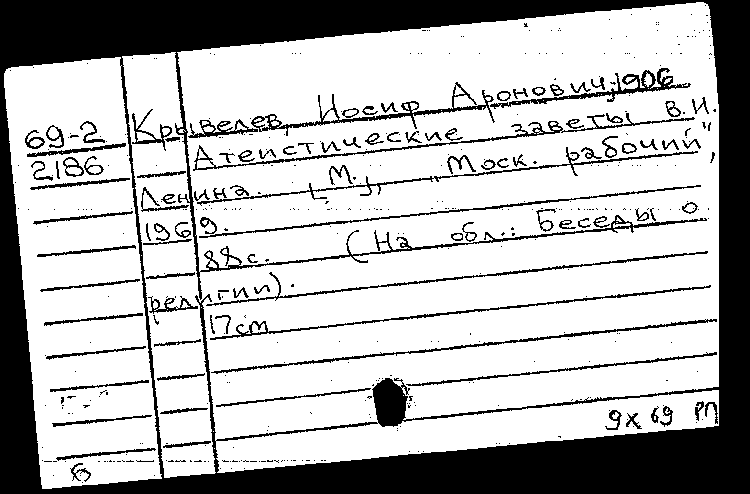 69-2 Крывелев, Иосиф Аронович, 1906
2186 Атеистические заветы В.И.
Ленина. [М.], "Моск. рабочий",
1969.
88с. (На обл.: Беседы о
религии).
17см
9x69 РП
6